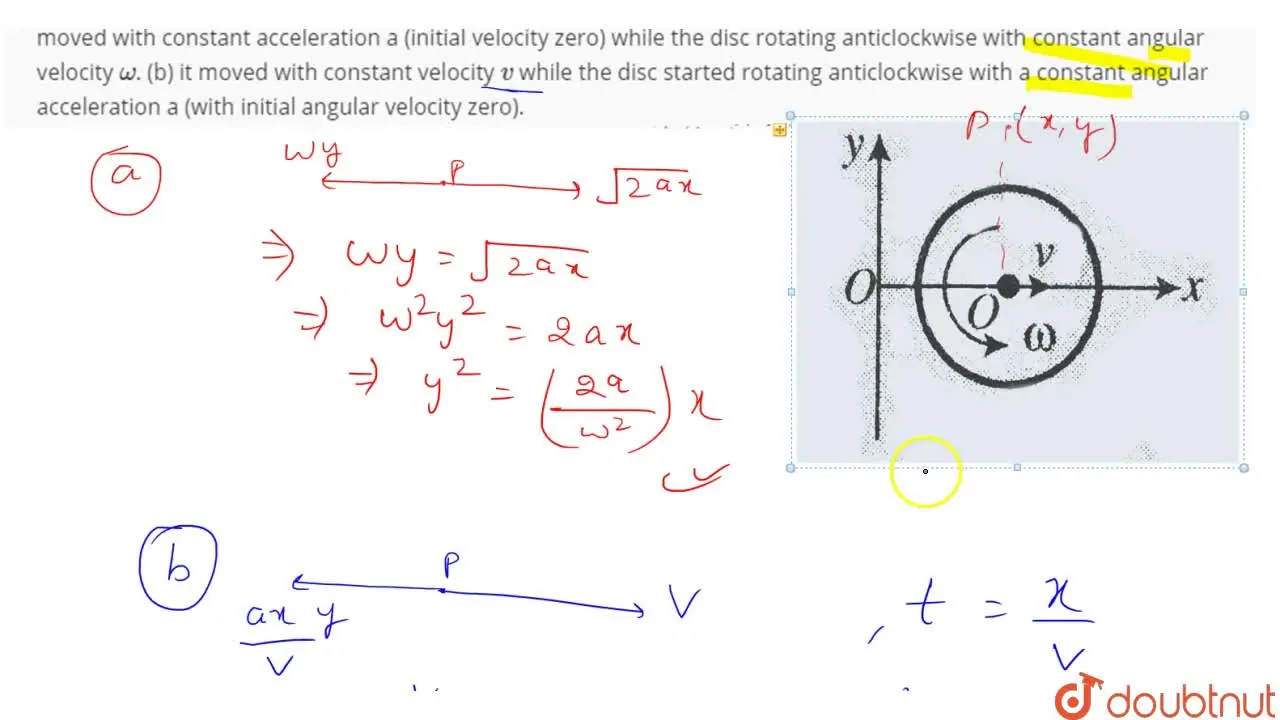 moved with constant acceleration a (initial velocity zero) while the disc rotating anticlockwise with constant angular
velocity ω. (b) it moved with constant velocity v while the disc started rotating anticlockwise with a constant angular
acceleration a (with initial angular velocity zero).
P (x, y)
a
ωy P √2ax
⇒ ωy = √2ax
⇒ ω²y² = 2ax
⇒ y² = (2a/ω²) x
y
O v x
O
ω
b
P
ax/v y V , t = x/v
doubtnut